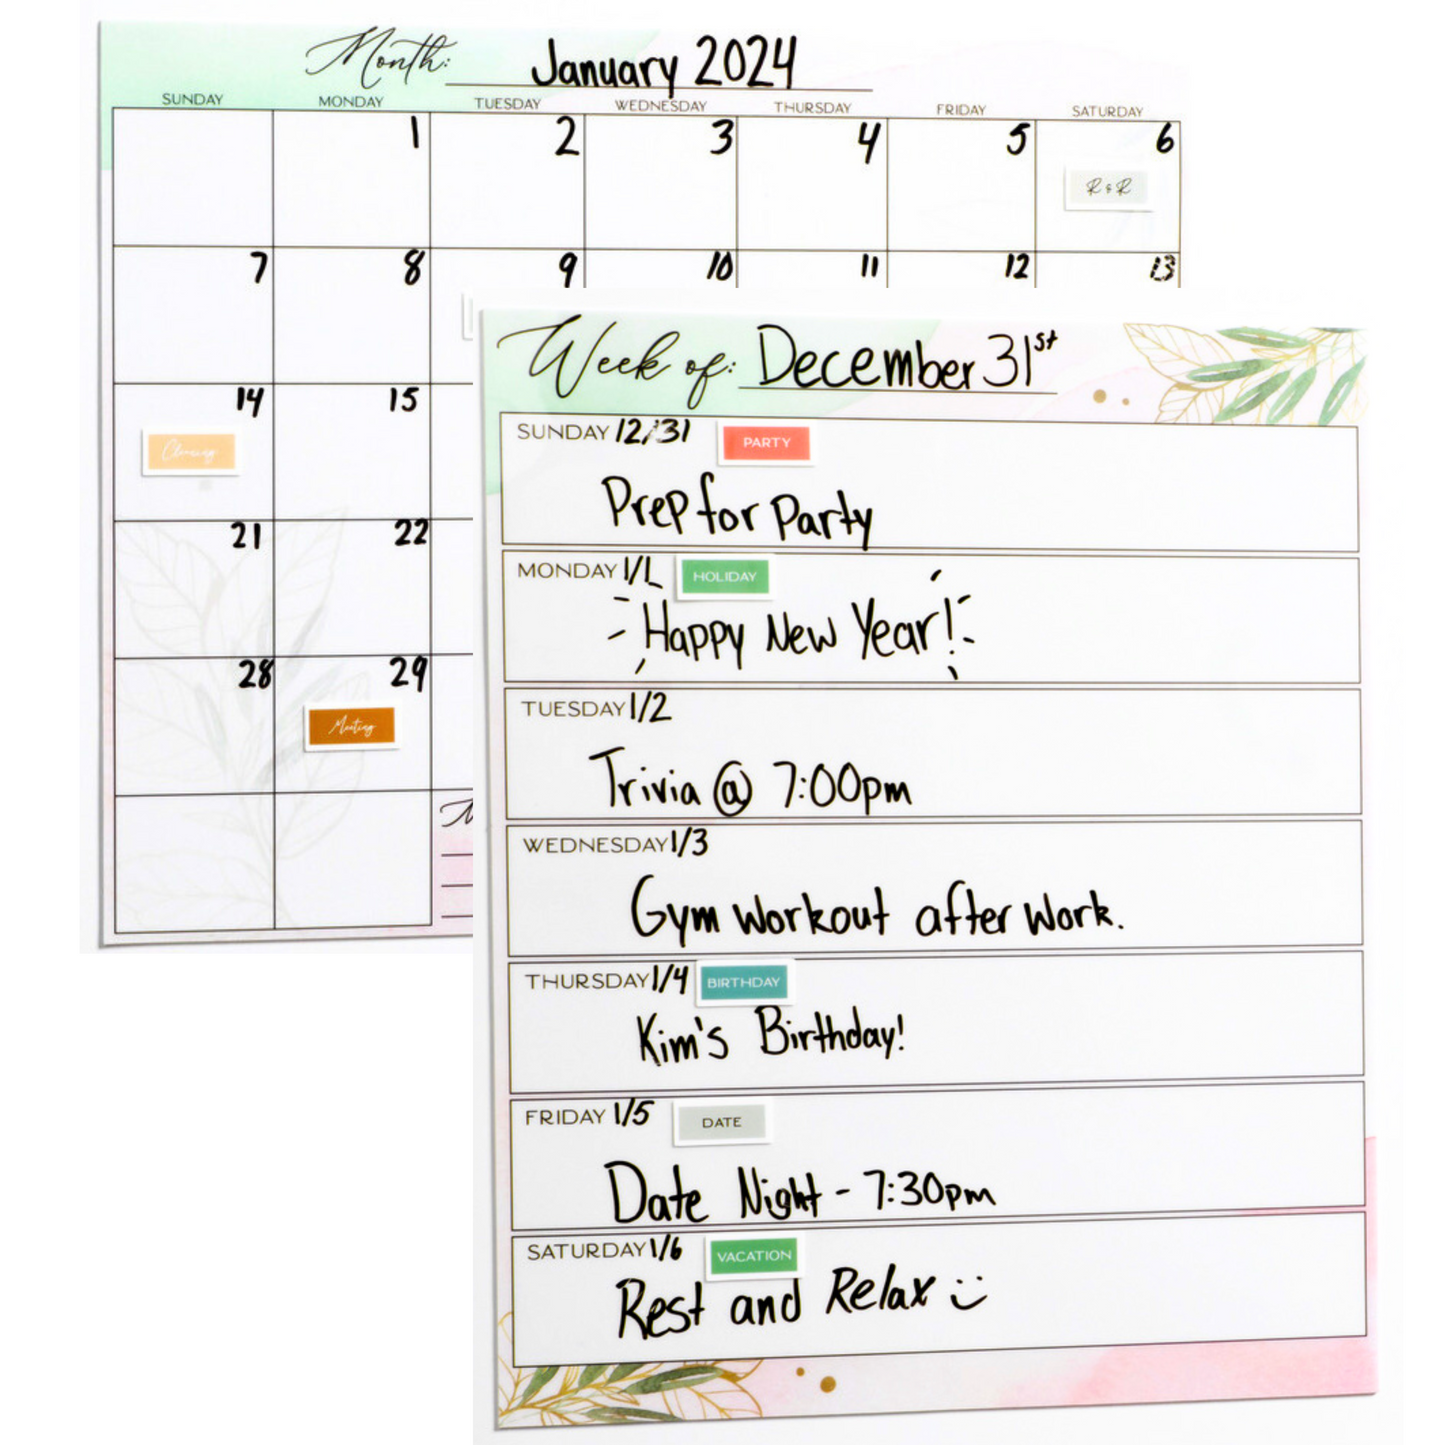 Month: January 2024
SUNDAY MONDAY TUESDAY WEDNESDAY THURSDAY FRIDAY SATURDAY
1 2 3 4 5 6
R & R
7 8 9 10 11 12 13
14 15
Cleaning
21 22
28 29
Meeting
Week of: December 31st
SUNDAY 12/31 PARTY
Prep for Party
MONDAY 1/1 HOLIDAY
Happy New Year!
TUESDAY 1/2
Trivia @ 7:00pm
WEDNESDAY 1/3
Gym workout after work.
THURSDAY 1/4 BIRTHDAY
Kim's Birthday!
FRIDAY 1/5 DATE
Date Night - 7:30pm
SATURDAY 1/6 VACATION
Rest and Relax